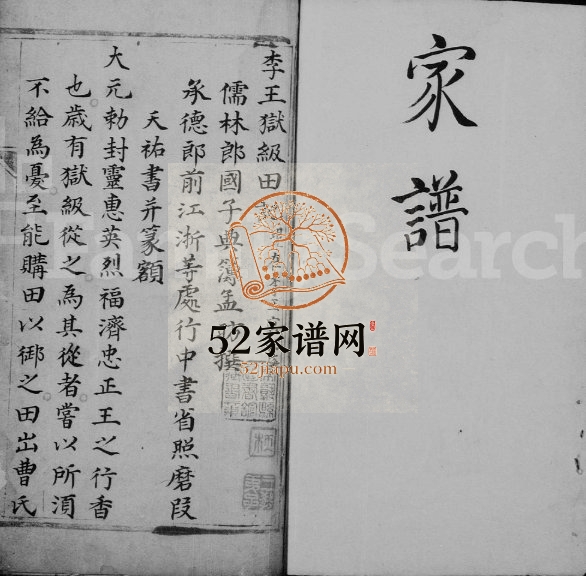 家譜
李王獄級田
儒林郎國子典簿孟 撰
承德郎前江浙等處行中書省照磨段
天祐書并篆額
大元勅封靈惠英烈福濟忠正王之行香
也歲有獄級從之為其從者嘗以所須
不給為憂至能購田以御之田出曹氏
52家谱网
52jiapu.com
Search